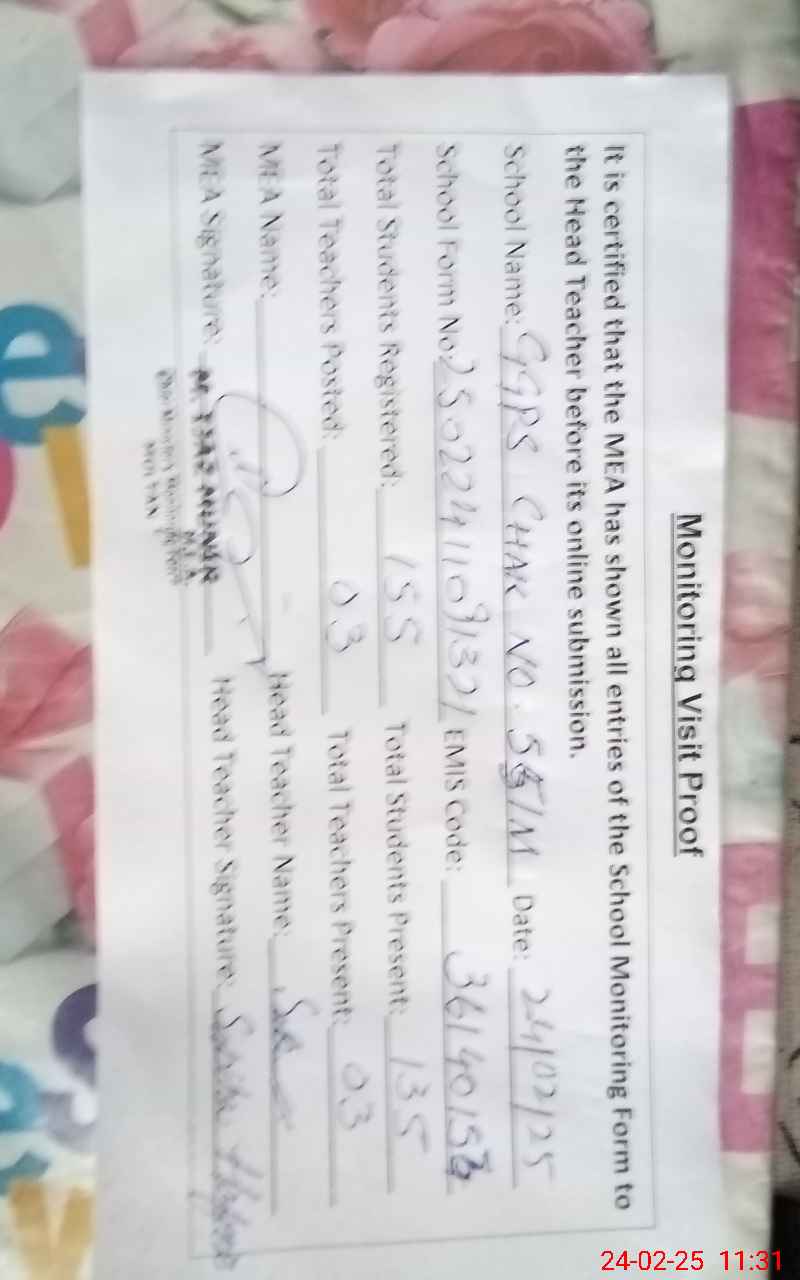 Monitoring Visit Proof
It is certified that the MEA has shown all entries of the School Monitoring Form to
the Head Teacher before its online submission.
School Name: GGPS CHAK NO. 5 /M Date: 24/02/25
School Form No: EMIS Code: 3614015
Total Students Registered: 155 Total Students Present: 135
Total Teachers Posted: 03 Total Teachers Present: 03
MEA Name: Head Teacher Name:
MEA Signature: Head Teacher Signature:
MUNIR
M.E.A
24-02-25 11:31